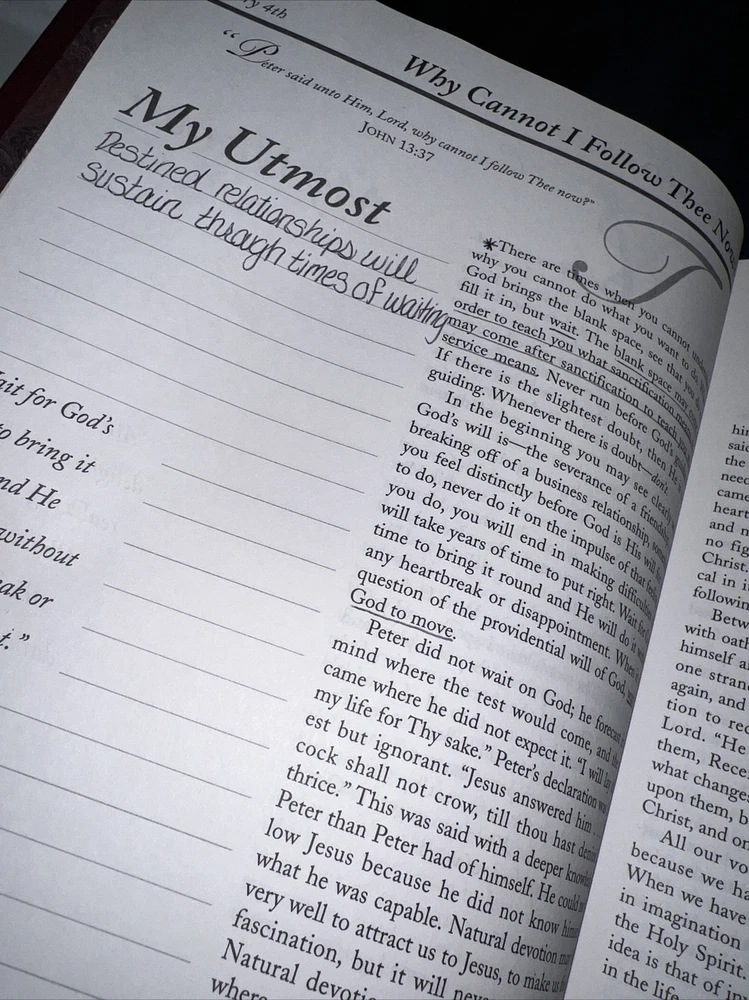 4th
Why Cannot I Follow Thee Now
"Peter said unto Him, Lord, why cannot I follow Thee now?"
JOHN 13:37
My Utmost
Destined relationships will
sustain through times of waiting
ait for God's
to bring it
nd He
without
eak or
t."
T
*There are times when you cannot
why you cannot do what you want to do.
God brings the blank space, see that you do
fill it in, but wait. The blank space may
order to teach you what sanctification means
may come after sanctification to teach
service means. Never run before God's
If there is the slightest doubt, then He
guiding. Whenever there is doubt—don't.
In the beginning you may see clearly
God's will is—the severance of a friendship
breaking off of a business relationship,
you feel distinctly before God is His will
to do, never do it on the impulse of that
you do, you will end in making difficulties
will take years of time to put right. Wait for
time to bring it round and He will do it
any heartbreak or disappointment. When
question of the providential will of God,
God to move.
Peter did not wait on God; he forecast
mind where the test would come, and
came where he did not expect it. "I will lay
my life for Thy sake." Peter's declaration was
est but ignorant. "Jesus answered him . . .
cock shall not crow, till thou hast
thrice." This was said with a deeper
Peter than Peter had of himself. He could
low Jesus because he did not know
what he was capable. Natural devotion
very well to attract us to Jesus, to make us
fascination, but it will never
Natural
where
him
said
the
need
came
heart
and
no
Christ.
cal in
following
with
himself
one
again, and
tion to
Lord. "He
them,
what
upon them,
Christ, and
All our
because we
When we have
in imagination
the Holy Spirit.
idea is that of
in the